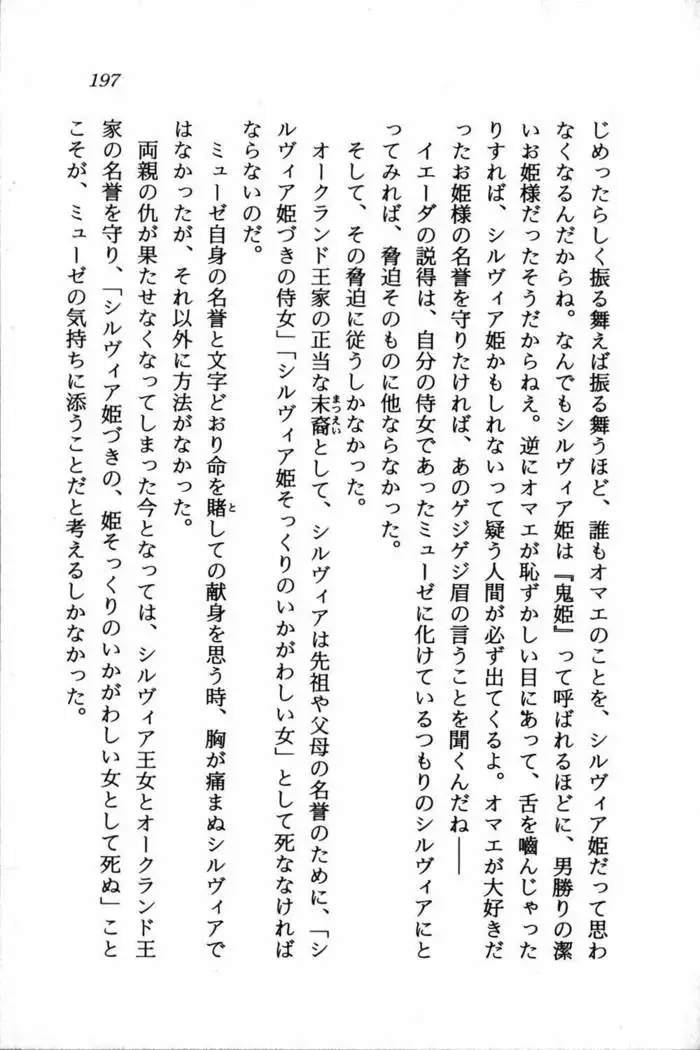 197
じめったらしく振る舞えば振る舞うほど、誰もオマエのことを、シルヴィア姫だって思わ
なくなるんだからね。なんでもシルヴィア姫は『鬼姫』って呼ばれるほどに、男勝りの潔
いお姫様だったそうだからねえ。逆にオマエが恥ずかしい目にあって、舌を嚙んじゃった
りすれば、シルヴィア姫かもしれないって疑う人間が必ず出てくるよ。オマエが大好きだ
ったお姫様の名誉を守りたければ、あのゲジゲジ眉の言うことを聞くんだね――
イエーダの説得は、自分の侍女であったミューゼに化けているつもりのシルヴィアにと
ってみれば、脅迫そのものに他ならなかった。
そして、その脅迫に従うしかなかった。
オークランド王家の正当な末裔まつえいとして、シルヴィアは先祖や父母の名誉のために、「シ
ルヴィア姫づきの侍女」「シルヴィア姫そっくりのいかがわしい女」として死ななければ
ならないのだ。
ミューゼ自身の名誉と文字どおり命を賭としての献身を思う時、胸が痛まぬシルヴィアで
はなかったが、それ以外に方法がなかった。
両親の仇が果たせなくなってしまった今となっては、シルヴィア王女とオークランド王
家の名誉を守り、「シルヴィア姫づきの、姫そっくりのいかがわしい女として死ぬ」こと
こそが、ミューゼの気持ちに添うことだと考えるしかなかった。